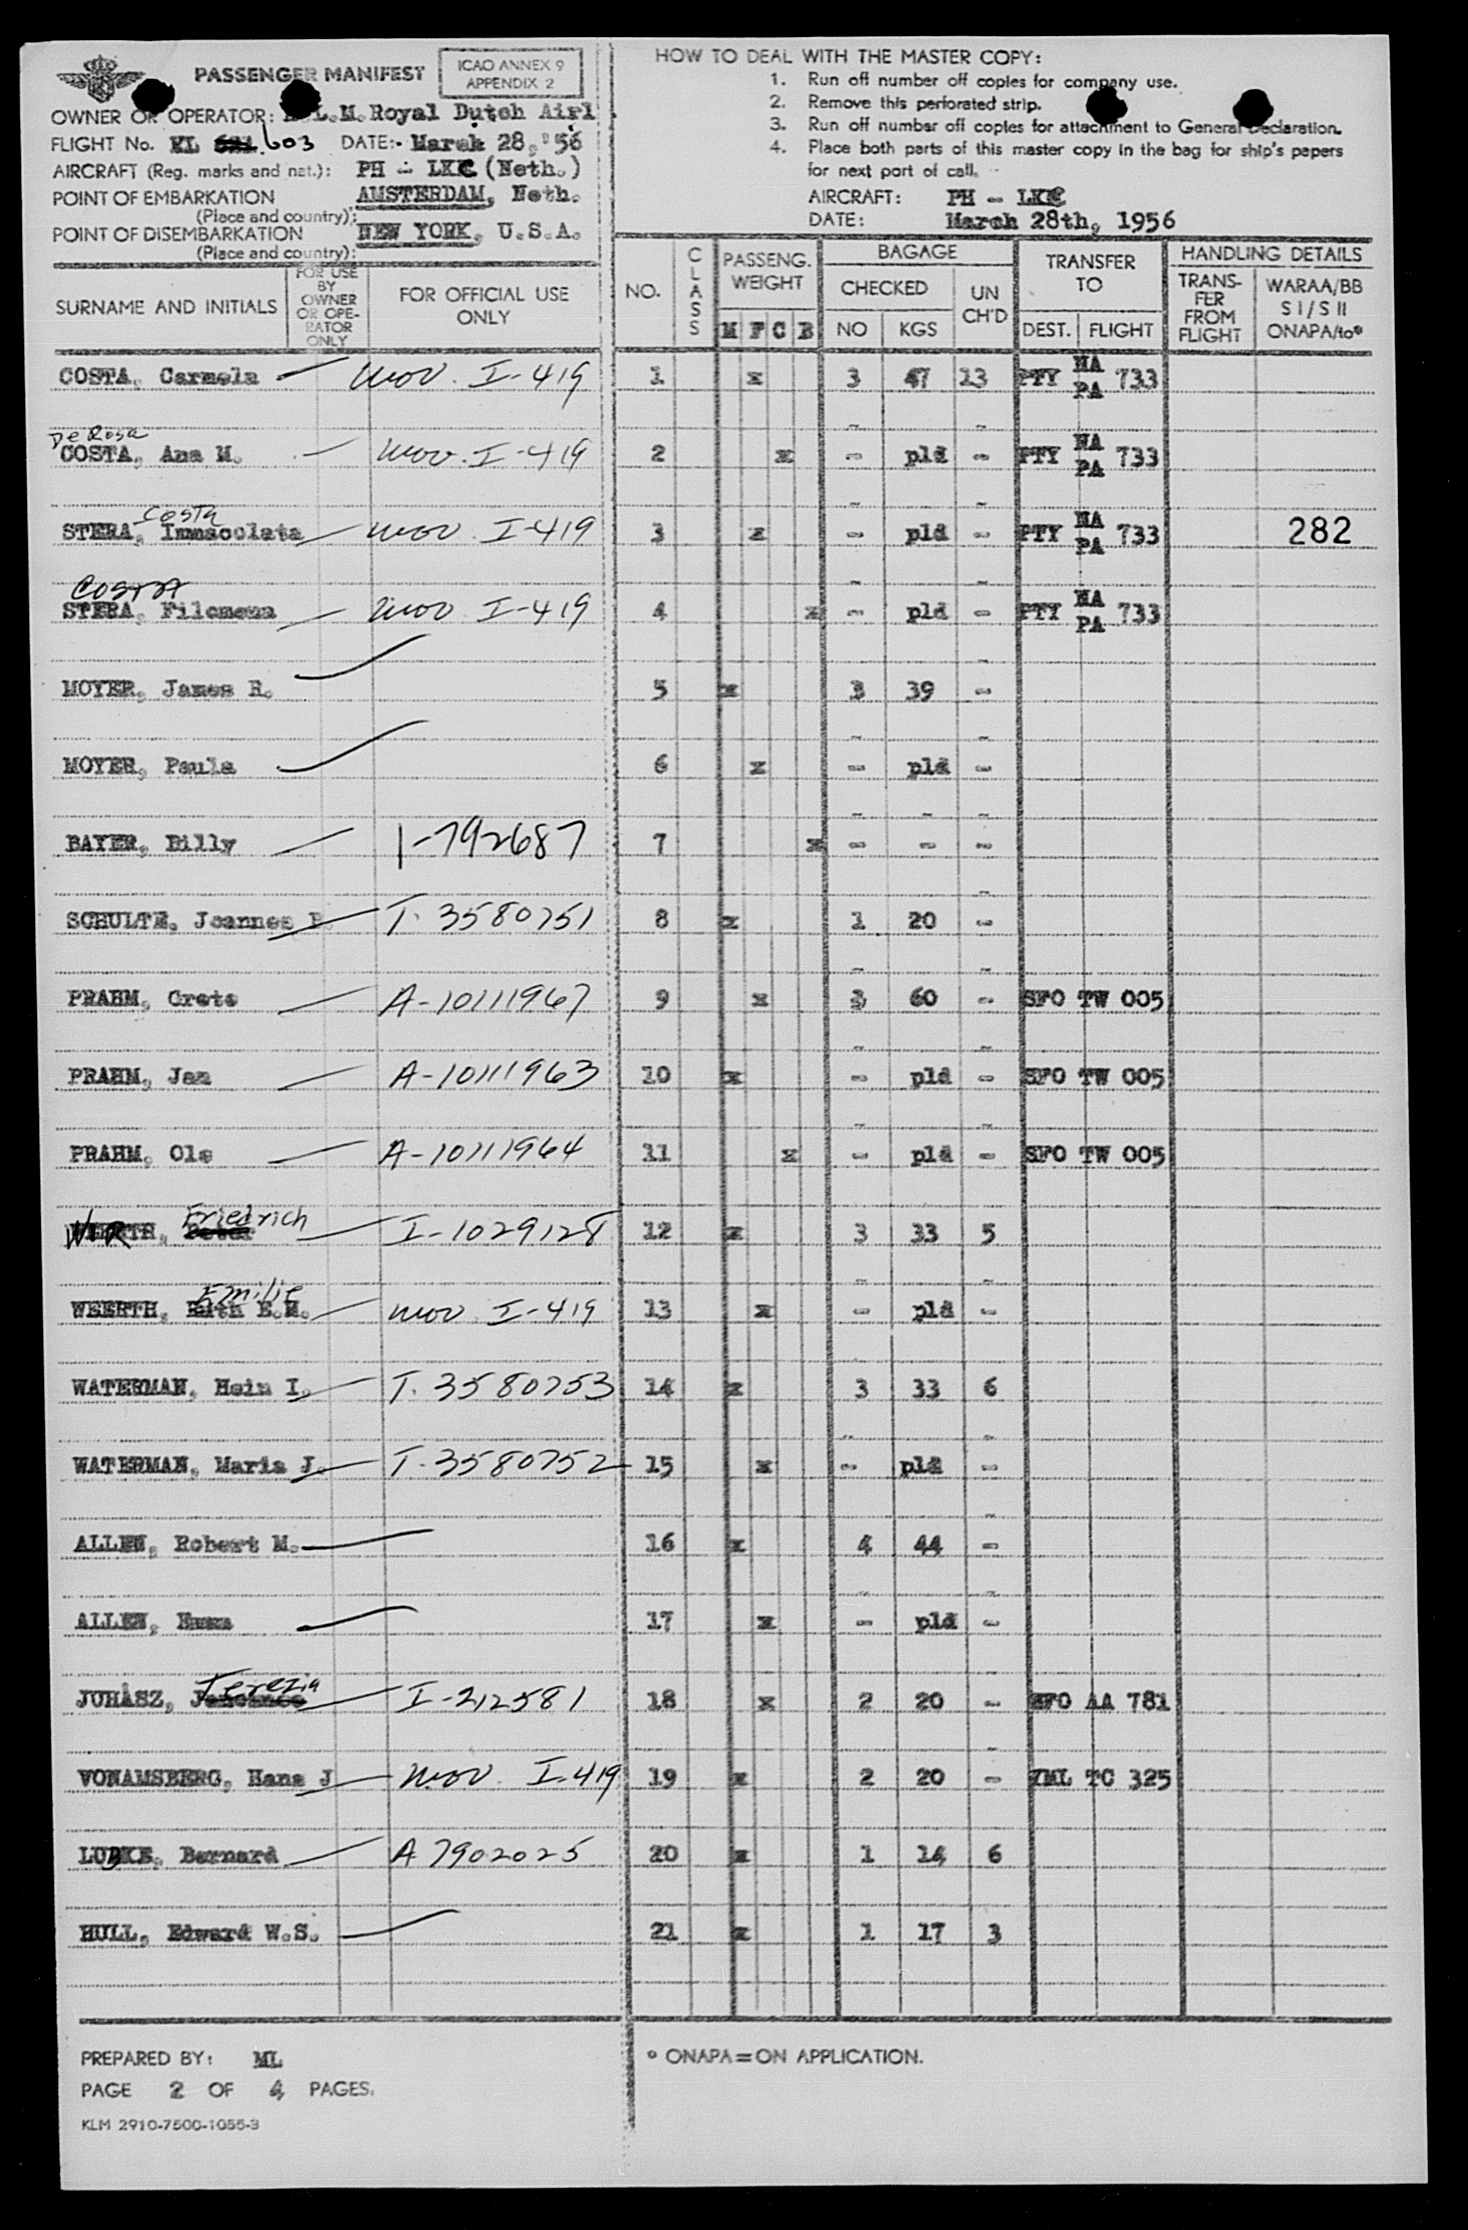 PASSENGER MANIFEST
ICAO ANNEX 9
APPENDIX 2
OWNER OR OPERATOR: K.L.M. Royal Dutch Airl
FLIGHT No. KL 603 DATE:- March 28, '56
AIRCRAFT (Reg. marks and nat.): PH - LKC (Neth.)
POINT OF EMBARKATION AMSTERDAM, Neth.
(Place and country):
POINT OF DISEMBARKATION NEW YORK, U.S.A.
(Place and country):
HOW TO DEAL WITH THE MASTER COPY:
1. Run off number off copies for company use.
2. Remove this perforated strip.
3. Run off number off copies for attachment to General Declaration.
4. Place both parts of this master copy in the bag for ship's papers
for next port of call.
AIRCRAFT: PH - LKC
DATE: March 28th, 1956
SURNAME AND INITIALS
FOR USE
BY
OWNER
OR OPE-
RATOR
ONLY
FOR OFFICIAL USE
ONLY
NO.
CLASS
PASSENG.
WEIGHT
M F C B
BAGAGE
CHECKED
NO KGS
UN
CH'D
TRANSFER
TO
DEST. FLIGHT
HANDLING DETAILS
TRANS-
FER
FROM
FLIGHT
WARAA/BB
S I / S II
ONAPA/to°
COSTA, Carmela mov. I-419 1 x 3 47 13 PTY NA PA 733
De Rosa
COSTA, Ana M. mov. I-419 2 x - pld - PTY NA PA 733
Costa
STERA, Immacolata mov I-419 3 x - pld - PTY NA PA 733 282
COSTA
STERA, Filomena mov I-419 4 x - pld - PTY NA PA 733
MOYER, James R. 5 x 3 39 -
MOYER, Paula 6 x - pld -
BAYER, Billy 1-792687 7 x - - -
SCHULTE, Joannes B T. 3580751 8 x 1 20 -
PRAHM, Grete A-10111967 9 x 3 60 - SFO TW 005
PRAHM, Jan A-10111963 10 x - pld - SFO TW 005
PRAHM, Ole A-10111964 11 x - pld - SFO TW 005
Friedrich
I-1029128 12 x 3 33 5
Emilie
WEERTH, Edith E.M. mov. I-419 13 x - pld -
WATERMAN, Hein I. T. 3580753 14 x 3 33 6
WATERMAN, Maria J. T. 3580752 15 x - pld -
ALLEN, Robert M. 16 x 4 44 -
ALLEN, Emma 17 x - pld -
Terezia
JUHÀSZ, I-212581 18 x 2 20 - SFO AA 781
VONAMSBERG, Hans J mov. I-419 19 x 2 20 - YML TC 325
LUBKE, Bernard A 7902025 20 x 1 14 6
HULL, Edward W.S. 21 x 1 17 3
PREPARED BY: ML
PAGE 2 OF 4 PAGES.
KLM 2910-7500-1055-3
° ONAPA=ON APPLICATION.